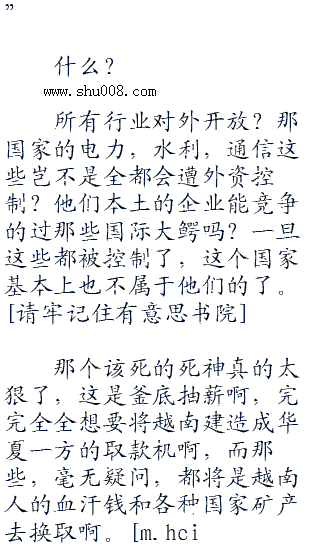 ”
什么？
www.shu008.com
所有行业对外开放？那
国家的电力，水利，通信这
些岂不是全都会遭外资控
制？他们本土的企业能竞争
的过那些国际大鳄吗？一旦
这些都被控制了，这个国家
基本上也不属于他们的了。
[请牢记住有意思书院]
那个该死的死神真的太
狠了，这是釜底抽薪啊，完
完全全想要将越南建造成华
夏一方的取款机啊，而那
些，毫无疑问，都将是越南
人的血汗钱和各种国家矿产
去换取啊。[m.hci